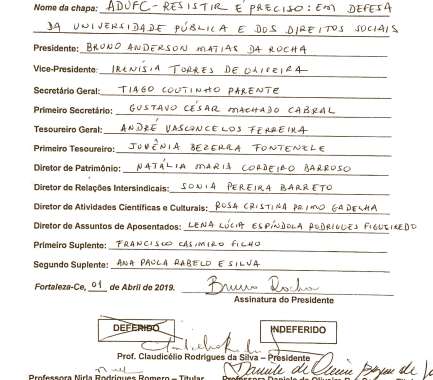 Nome da chapa: ADUFC-RESISTIR É PRECISO: EM DEFESA
DA UNIVERSIDADE PÚBLICA E DOS DIREITOS SOCIAIS
Presidente: BRUNO ANDERSON MATIAS DA ROCHA
Vice-Presidente: IRENÍSIA TORRES DE OLIVEIRA
Secretário Geral: TIAGO COUTINHO PARENTE
Primeiro Secretário: GUSTAVO CÉSAR MACHADO CABRAL
Tesoureiro Geral: ANDRÉ VASCONCELOS FERREIRA
Primeiro Tesoureiro: JUVÊNIA BEZERRA FONTENELE
Diretor de Patrimônio: NATÁLIA MARIA CORDEIRO BARROSO
Diretor de Relações Intersindicais: SONIA PEREIRA BARRETO
Diretor de Atividades Científicas e Culturais: ROSA CRISTINA PRIMO GADELHA
Diretor de Assuntos de Aposentados: LENA LÚCIA ESPÍNDOLA RODRIGUES FIGUEIREDO
Primeiro Suplente: FRANCISCO CASIMIRO FILHO
Segundo Suplente: ANA PAULA RABELO E SILVA
Fortaleza-Ce, 01 de Abril de 2019. Bruno Rocha
Assinatura do Presidente
DEFERIDO INDEFERIDO
Prof. Claudicélio Rodrigues da Silva – Presidente
Professora Nirla Rodrigues Romero – Titular Professora Daniele de Oliveira